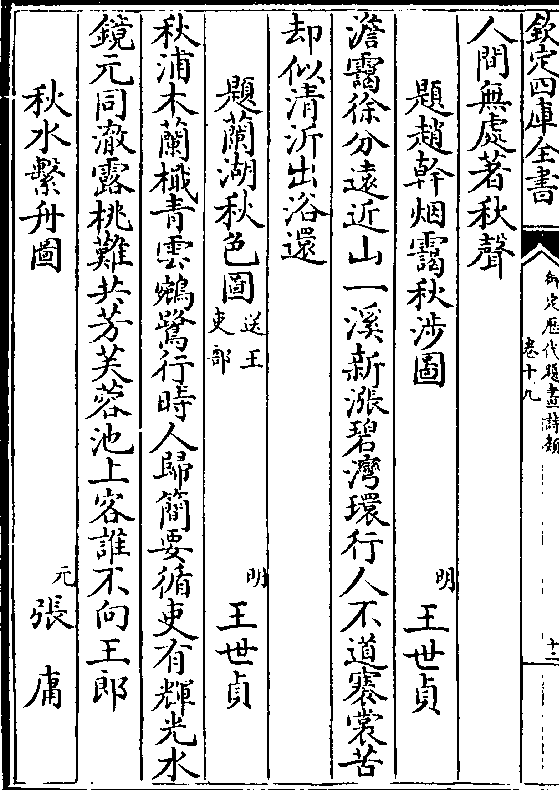 欽定四庫全書
御定歷代題畫詩類
卷十九
十二
人間無處著秋聲
題趙幹烟靄秋涉圖
明
王世貞
澹靄徐分遠近山一溪新漲碧灣環行人不道褰裳苦
却似清沂出浴還
題蘭湖秋色圖
送王
吏部
明
王世貞
秋浦木蘭檝青雲鵷鷺行時人歸簡要循吏有輝光水
鏡元同澈露桃難共芳芙蓉池上客誰不向王郎
秋水繫舟圖
元
張庸